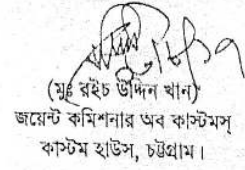 (মুঃ রইচ উদ্দিন খান)
জয়েন্ট কমিশনার অব কাস্টমস্
কাস্টম হাউস, চট্টগ্রাম।